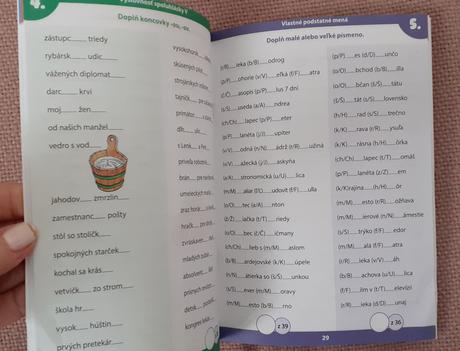 4.
slovnosť spoluhlásky v
Doplň koncovky -ou, -ov.
zástupc___ triedy
rybársk___ udic___
vážených diplomat___
darc___ krvi
moj___ žen___
od našich manžel___
vedro s vod___
jahodov___ zmrzlin___
zamestnanc___ pošty
stôl so stoličk___
spokojných starček___
kochal sa krás___
vetvičk___ zo strom___
škola hr___
vysok___ húštin___
prvých pretekár___
vysokohorsk___
skúsených pilot___
strojárskych
tajničk___
primátor___
dlh___ ulic___
s Lenk___ a Petr___
priveľa robotník___
brán___
umeleckých
zraz horár___
hračk___ pre
zvráskaven___
mladých zubár___
absolvent___
prísnych
detsk___
kongres
Vlastné podstatné mená
5.
Doplň malé alebo veľké písmeno.
(r/R)___ieka (b/B)___odrog
(p/P)___ohorie (v/V)___eľká (f/F)___atra
(č/Č)___asopis (p/P)___lus 7 dní
(s/S)___useda (a/A)___ndrea
(ch/Ch)___lapec (p/P)___eter
(p/P)___lanéta (j/J)___upiter
(v/V)___odná (n/N)___ádrž (r/R)___užiná
(v/V)___edecká (j/J)___askyňa
(a/A)___stronomická (u/U)___lica
(m/M)___aliar (ľ/Ľ)___udovít (f/F)___ulla
(o/O)___tec (a/A)___nton
(ž/Ž)___iačka (t/T)___riedy
(o/O)___bec (č/Č)___ičmany
(ch/Ch)___lieb s (m/M)___aslom
(b/B)___ardejovské (k/K)___úpele
(n/N)___átierka so (š/Š)___unkou
(s/S)___ever (m/M)___oravy
(m/M)___esto (b/B)___rno
(p/P)___es (d/D)___unčo
(o/O)___bchod (b/B)___illa
(o/O)___bčan (š/Š)___tátu
(š/Š)___tát (s/S)___lovensko
(h/H)___rad (s/S)___trečno
(k/K)___rava (r/R)___ysuľa
(k/K)___rásna (h/H)___ôrka
(ch/Ch)___lapec (t/T)___omáš
(p/P)___lanéta (z/Z)___em
(k/K)rajina___ (h/H)___ôr
(m/M)___esto (r/R)___ožňava
(m/M)___ierové (n/N)___ámestie
(s/S)___trýko (f/F)___edor
(m/M)___alá (f/F)___atra
(r/R)___ieka (v/V)___áh
(b/B)___achova (u/U)___lica
(f/F)___ilm v (t/T)___elevízi
(r/R)___ieka (d/D)___unaj
z 39
z 36
29